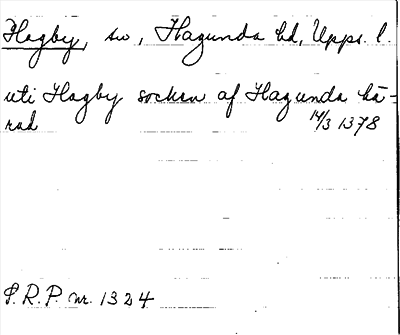 Hagby, sn, Hagunda hd, Upps. l.
uti Hagby socken af Hagunda hä-
rad 14/3 1378
S.R.P. nr. 1324